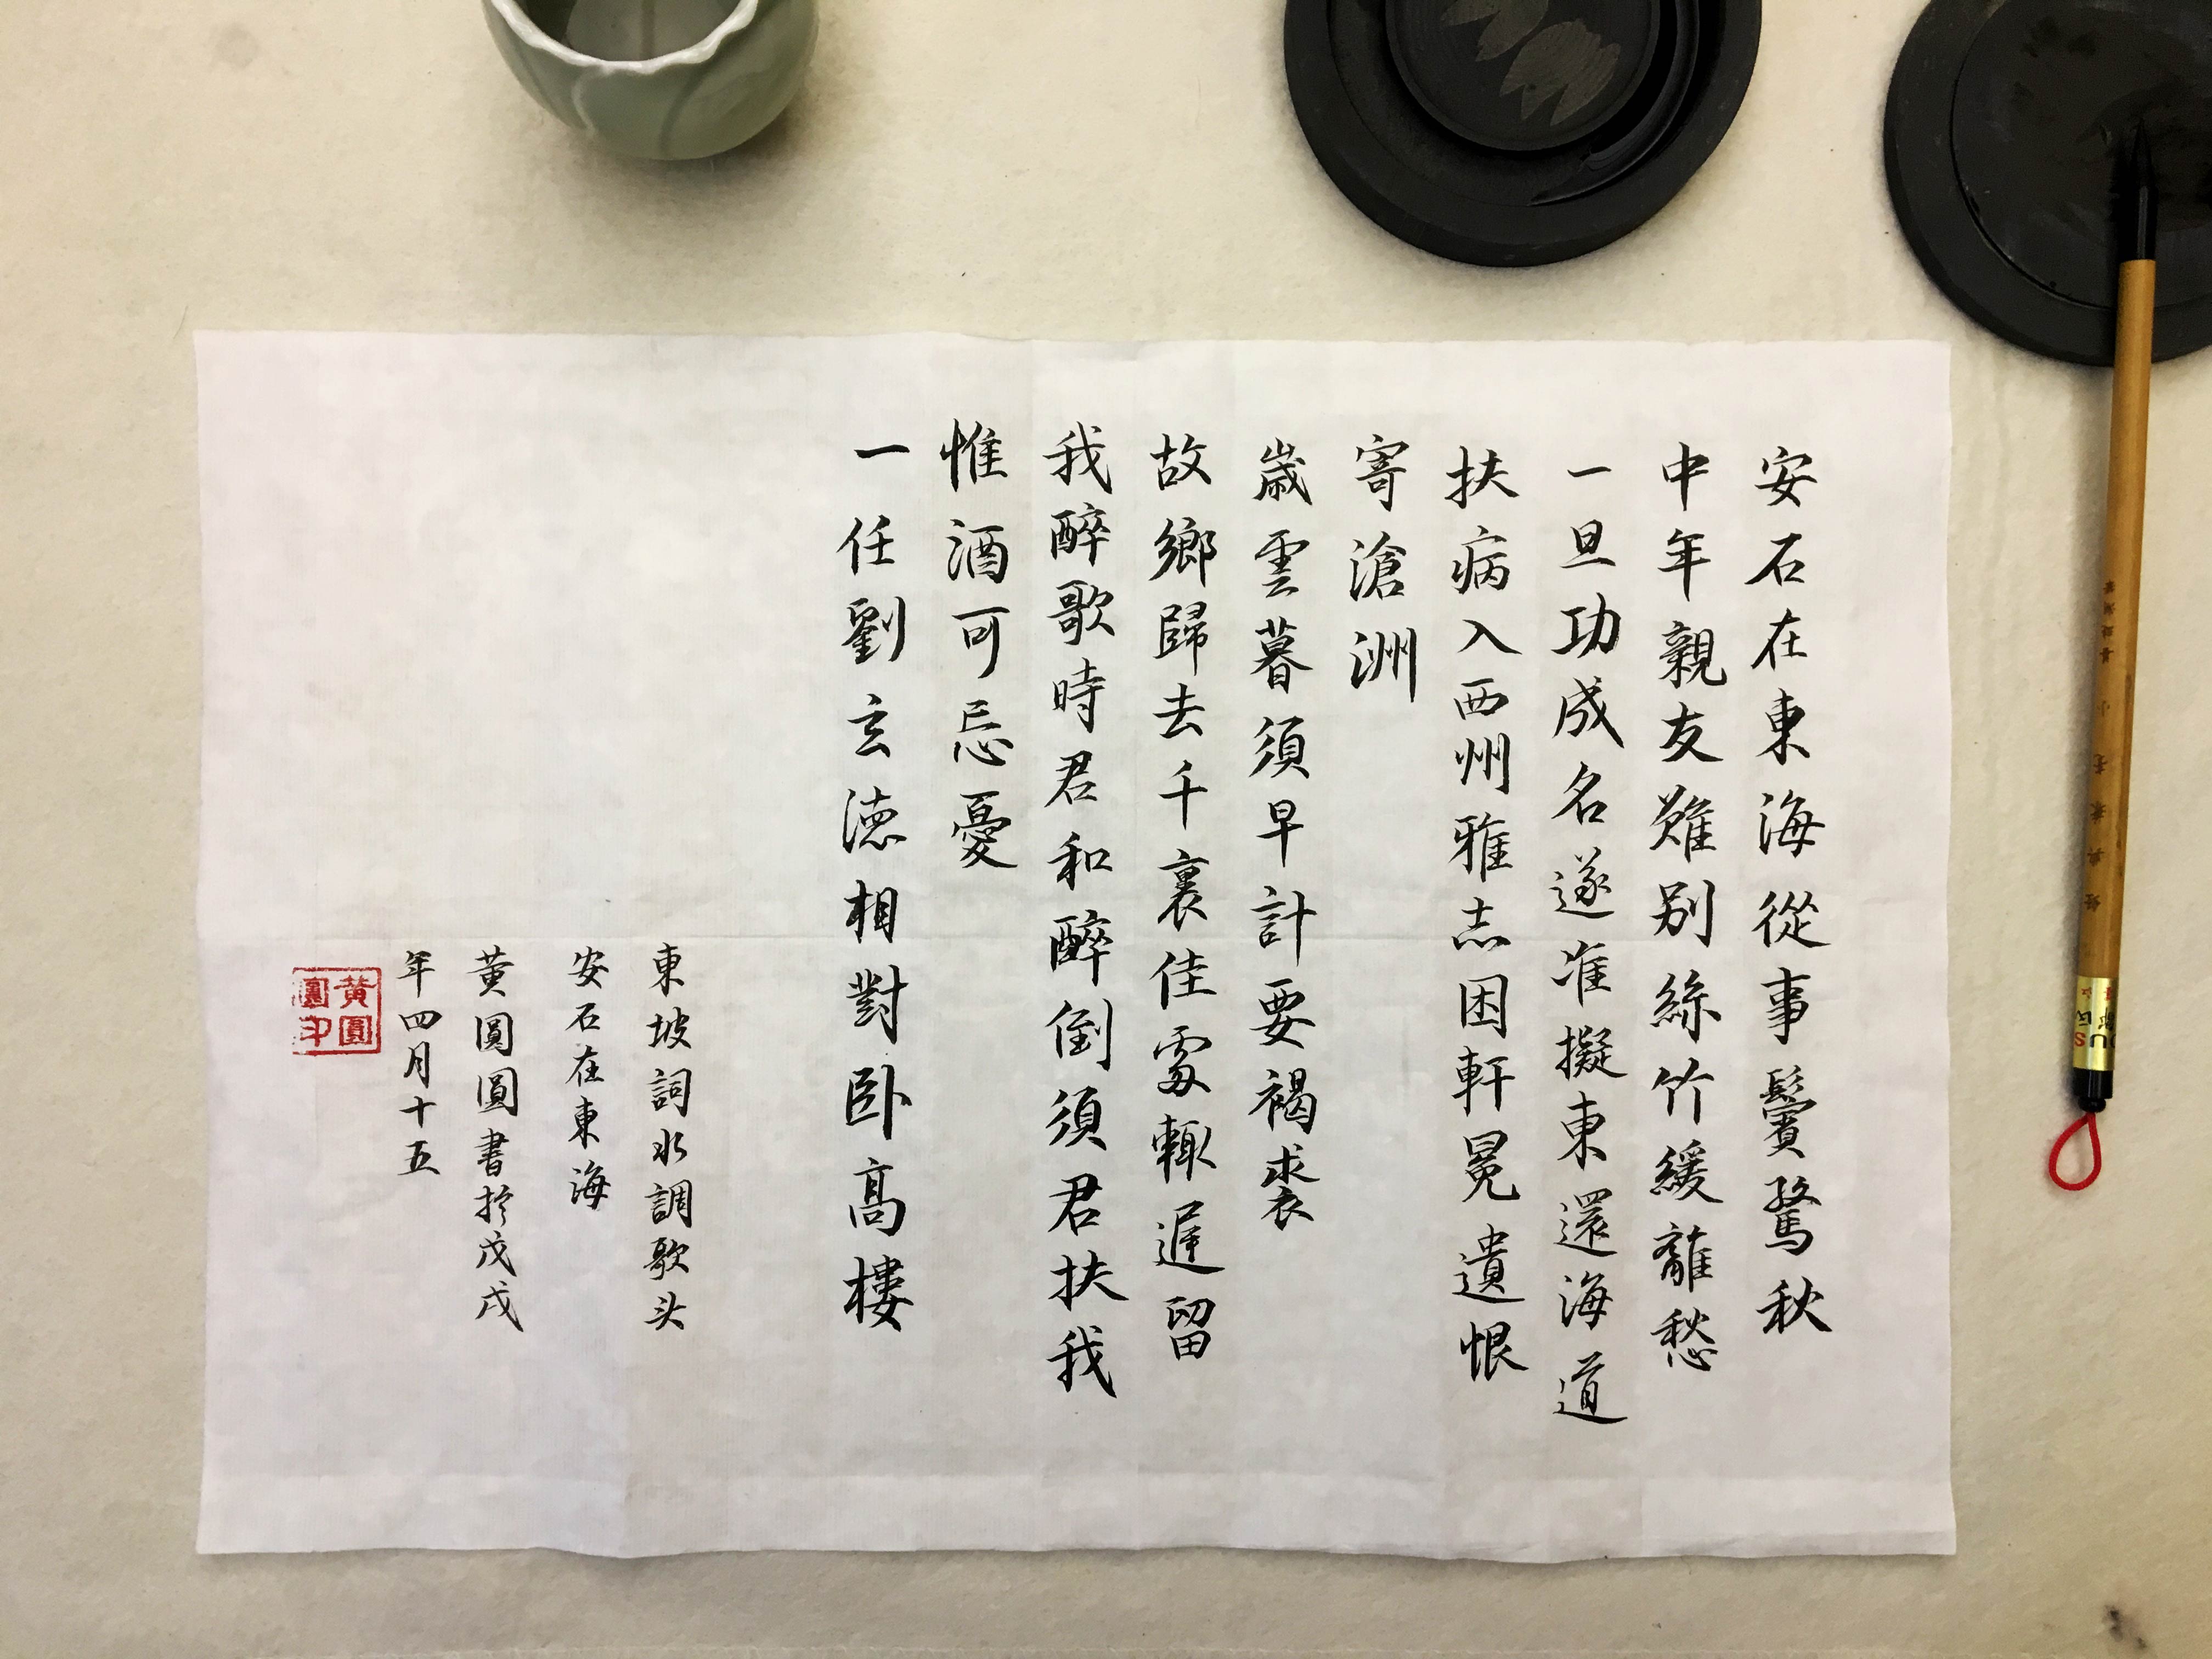 安石在東海從事鬢驚秋
中年親友難別絲竹緩離愁
一旦功成名遂准擬東還海道
扶病入西州雅志困軒冕遺恨
寄滄洲
歲雲暮須早計要褐裘
故鄉歸去千裏佳處輒遲留
我醉歌時君和醉倒須君扶我
惟酒可忘憂
一任劉玄德相對臥高樓
東坡詞水調歌头
安石在東海
黃圓圓書於戊戌
年四月十五
黃圓
圓印